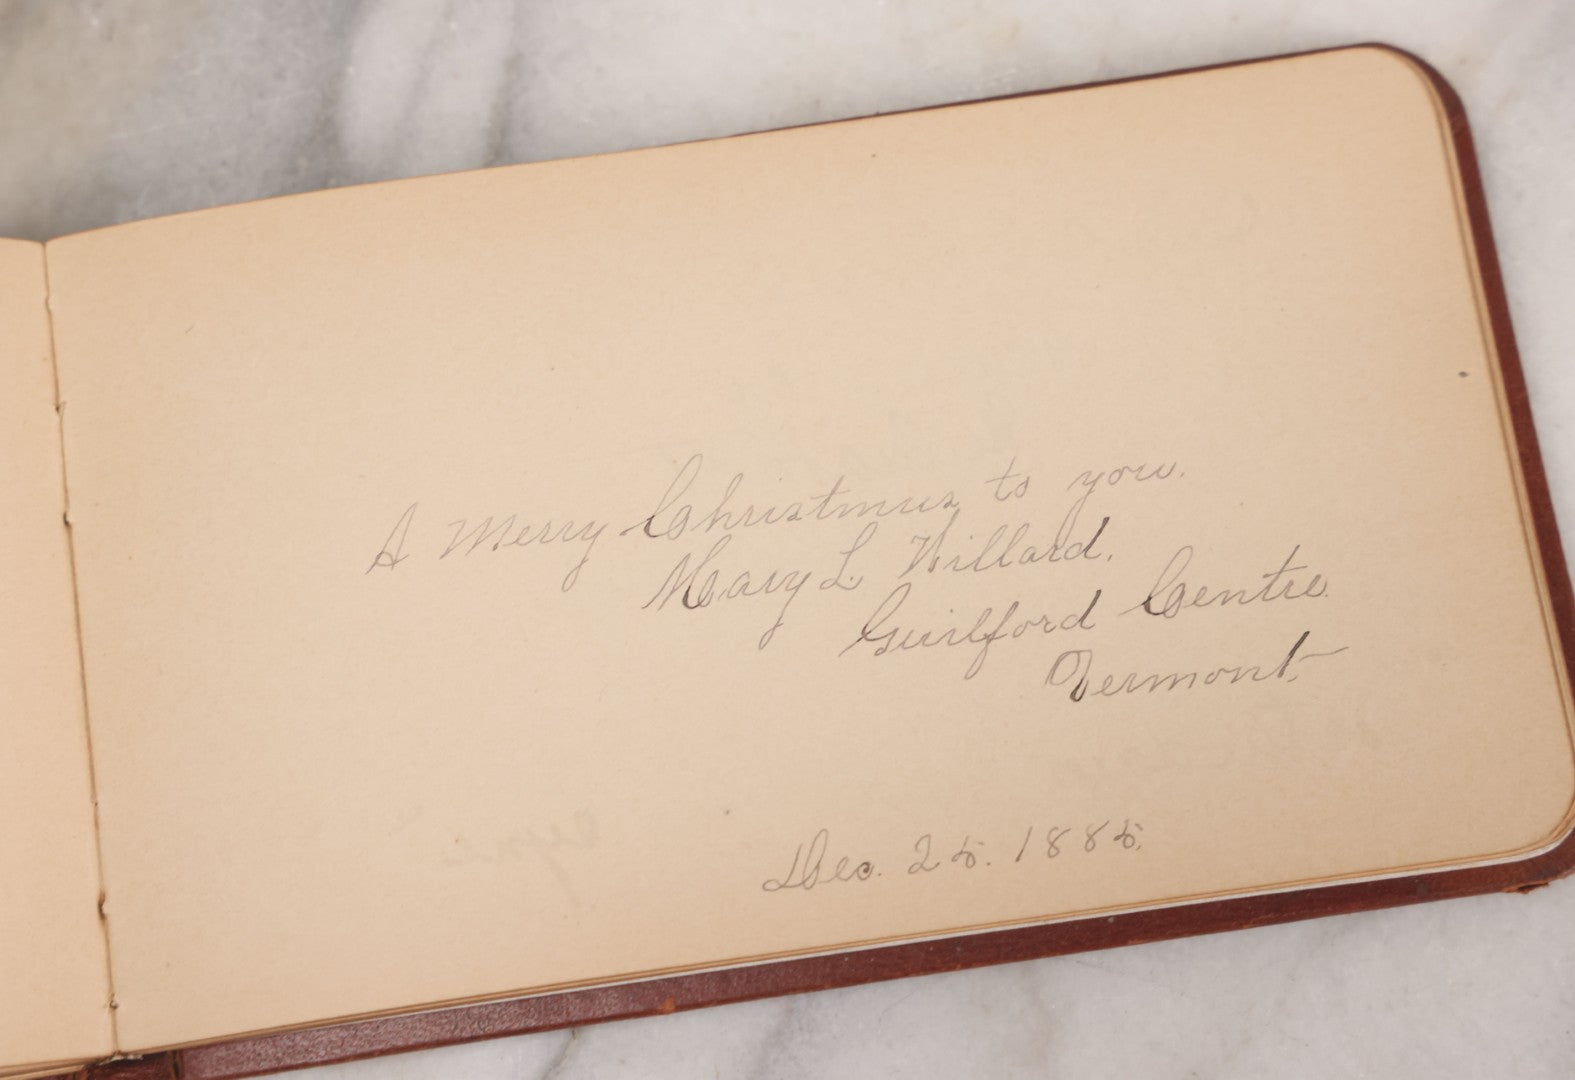 A Merry Christmas to you.
Mary L Willard.
Guilford Centre
Vermont.
Dec. 25. 1885.